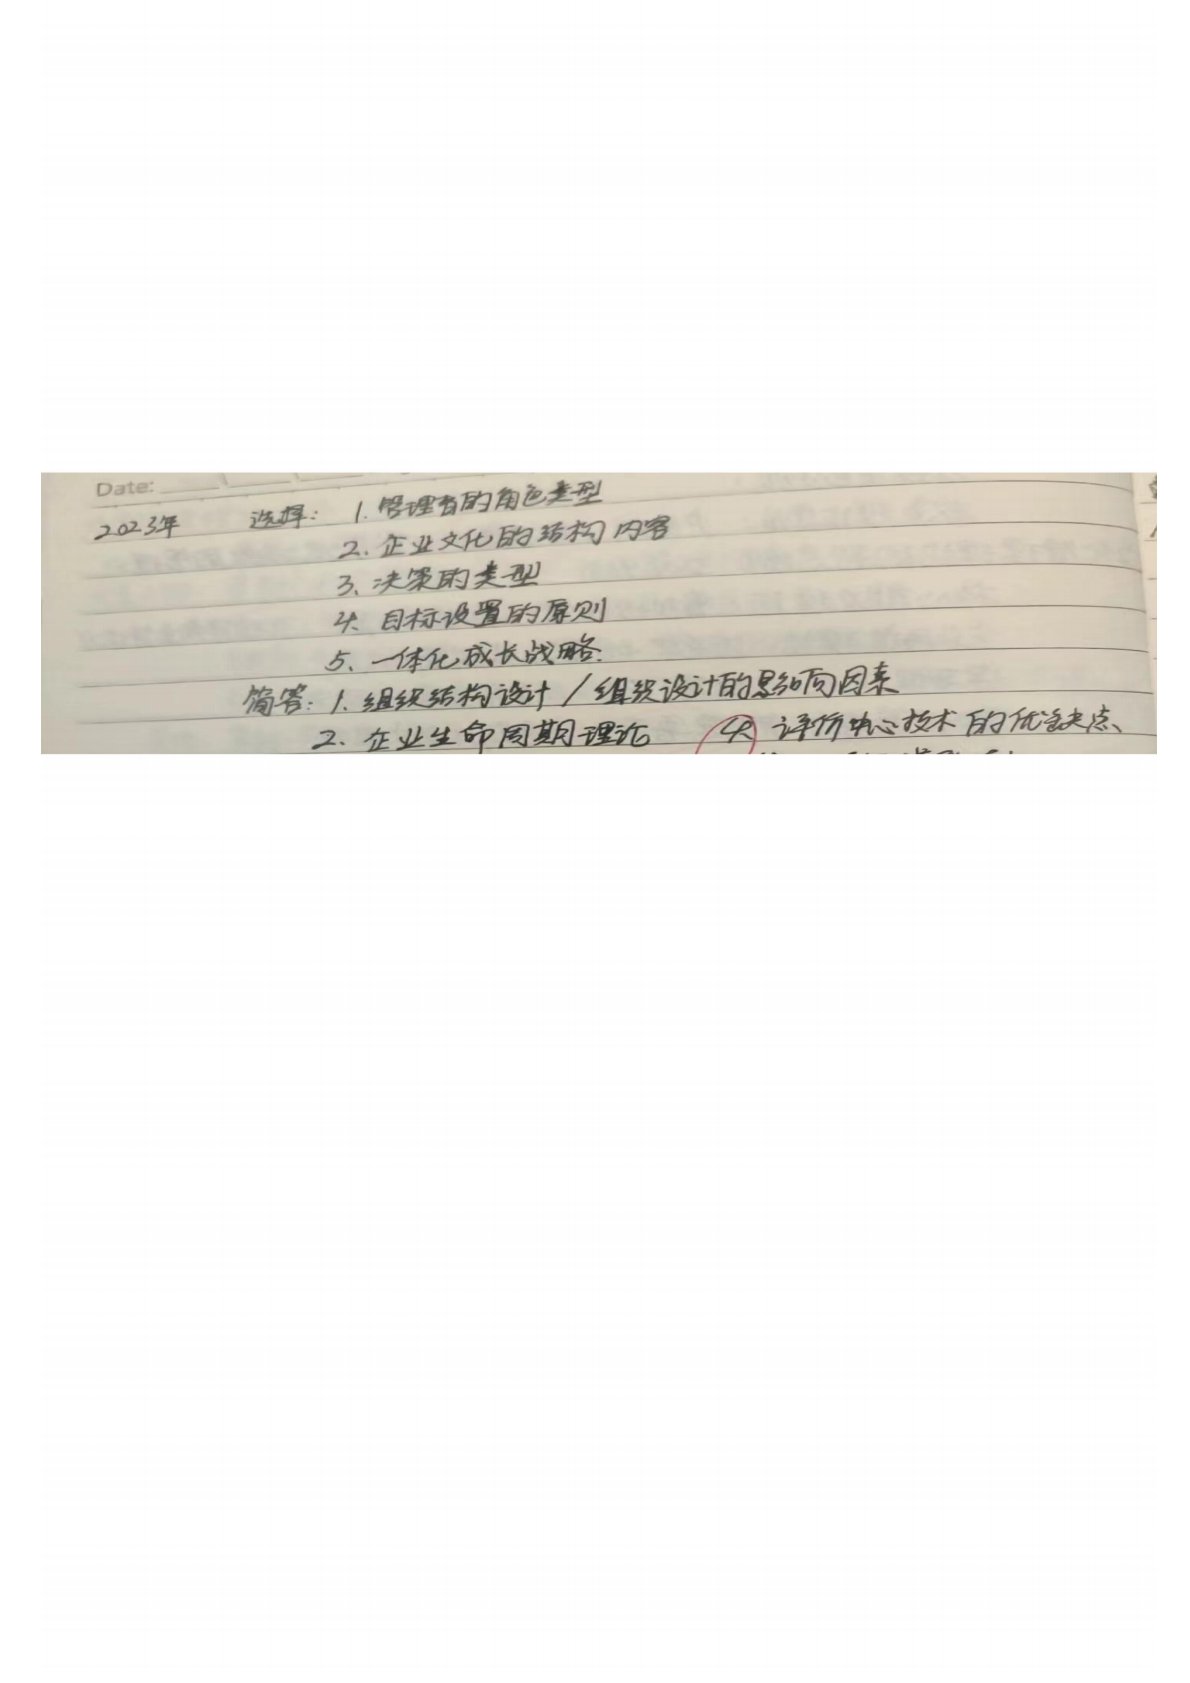 Date:
2023年 选择: 1. 管理者的角色类型
2、企业文化的结构内容
3、决策的类型
4、目标设置的原则
5、一体化成长战略.
简答: 1. 组织结构设计 / 组织设计的影响因素
2、企业生命周期理论 4、评价中心技术的优缺点、